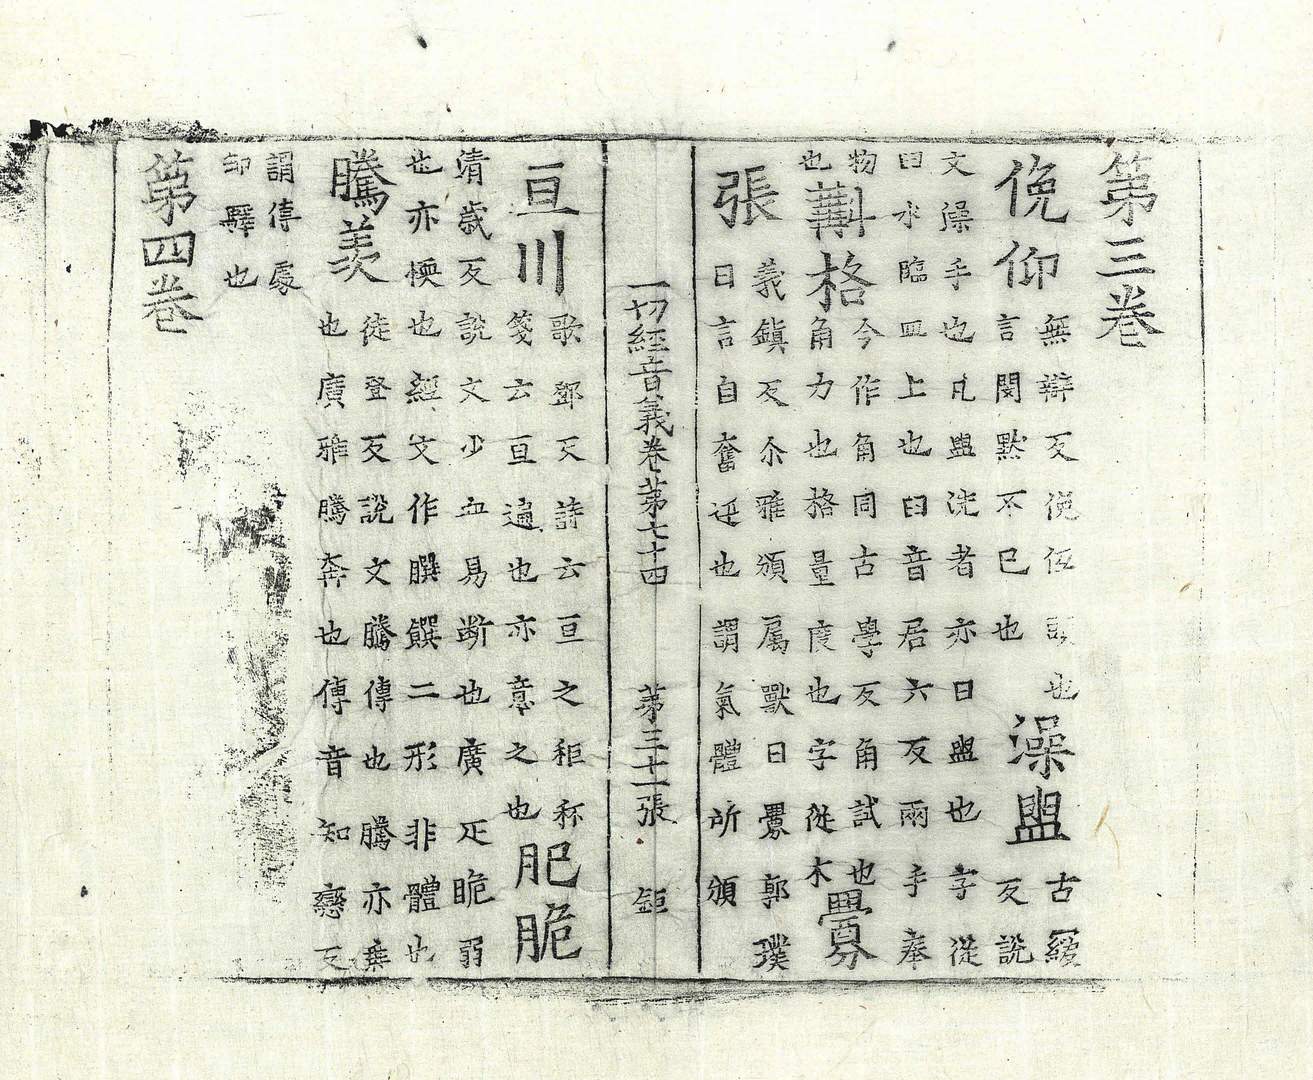 第三卷
俛仰
無辯反俛伍頭也
言閔默不已也
澡盥
古緩
反說
文澡手也凡盥洗者亦曰盥也字從
曰水臨皿上也臼音居六反兩手奉
物
也
格
今作角同古學反角試也
角力也格量度也字從木
釁
張
義鎭反尒雅頒属獸曰釁郭璞
曰言自奮迅也謂氣體所頒
一切經音義卷苐七十四 苐三十一張 鉅
亘川
歌鄧反詩云亘之秬秠
箋云亘遍也亦意之也
肥脆
清歳反說文少血易断也廣疋脆弱
也亦愞也經文作膬饌二形非體也
騰羡
徒登反說文騰傳也騰亦乗
也廣雅騰奔也傳音知戀反
謂傳處
卽驛也
第四卷